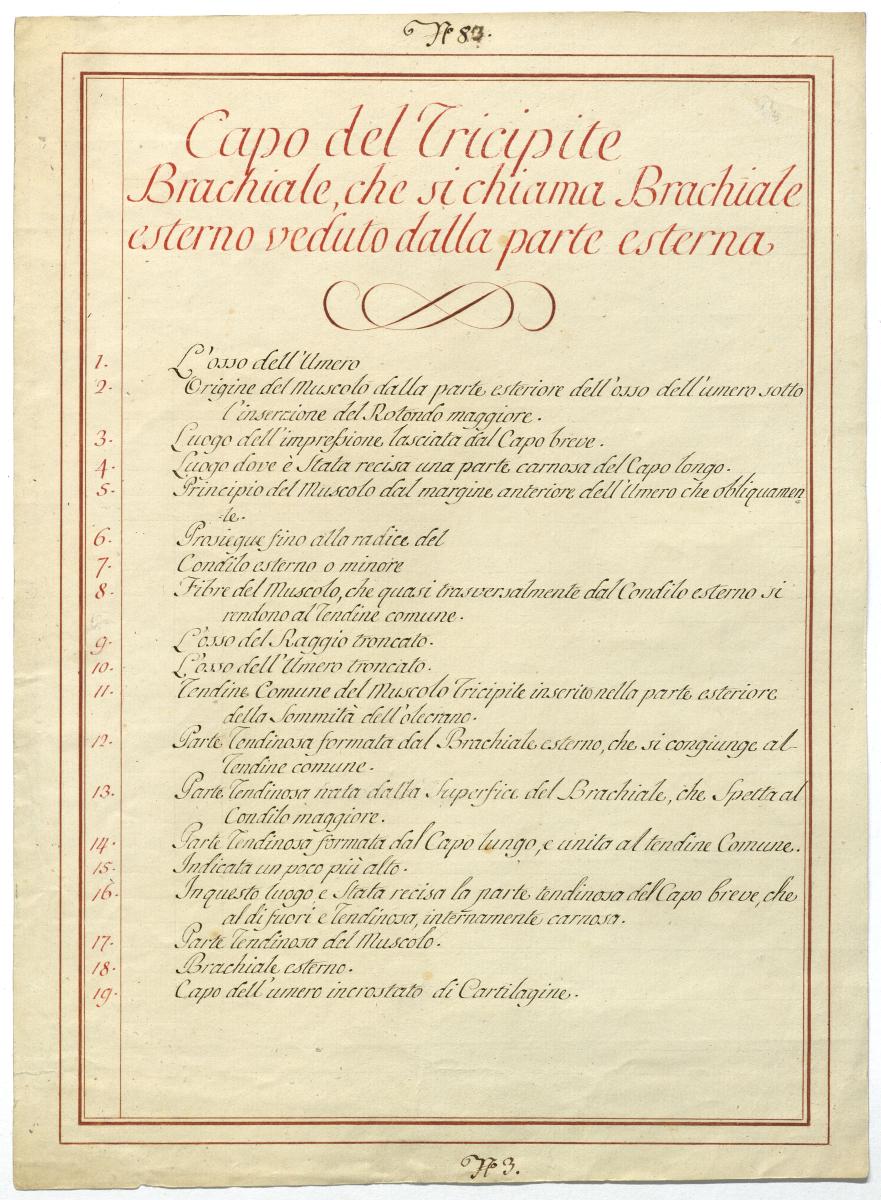 No 83.
Capo del Tricipite
Brachiale, che si chiama Brachiale
esterno veduto dalla parte esterna
1. L'osso dell'Umero
2. Origine del Muscolo dalla parte esteriore dell'osso dell'umero sotto
l'inserzione del Rotondo maggiore.
3. Luogo dell'impreſsione lasciata dal Capo breve.
4. Luogo dove è Stata recisa una parte carnosa del Capo longo.
5. Principio del Muscolo dal margine anteriore dell'Umero che obliquamen=
te.
6. Prosiegue fino alla radice del
7. Condilo esterno o minore
8. Fibre del Muscolo, che quasi trasversalmente dal Condilo esterno si
rendono al Tendine comune.
9. L'osso del Raggio troncato.
10. L'osso dell'Umero troncato.
11. Tendine Comune del Muscolo Tricipite inscrito nella parte esteriore
della Sommità dell'olecrano.
12. Parte Tendinosa formata dal Brachiale esterno, che si congiunge al
Tendine comune.
13. Parte Tendinosa nata dalla Superfice del Brachiale, che Spetta al
Condilo maggiore.
14. Parte Tendinosa formata dal Capo lungo, e unita al tendine Comune.
15. Indicata un poco più alto.
16. In questo luogo e Stata recisa la parte tendinosa del Capo breve, che
al di fuori e Tendinosa, internamente carnosa.
17. Parte Tendinosa del Muscolo.
18. Brachiale esterno.
19. Capo dell'umero incrostato di Cartilagine.
No 3.